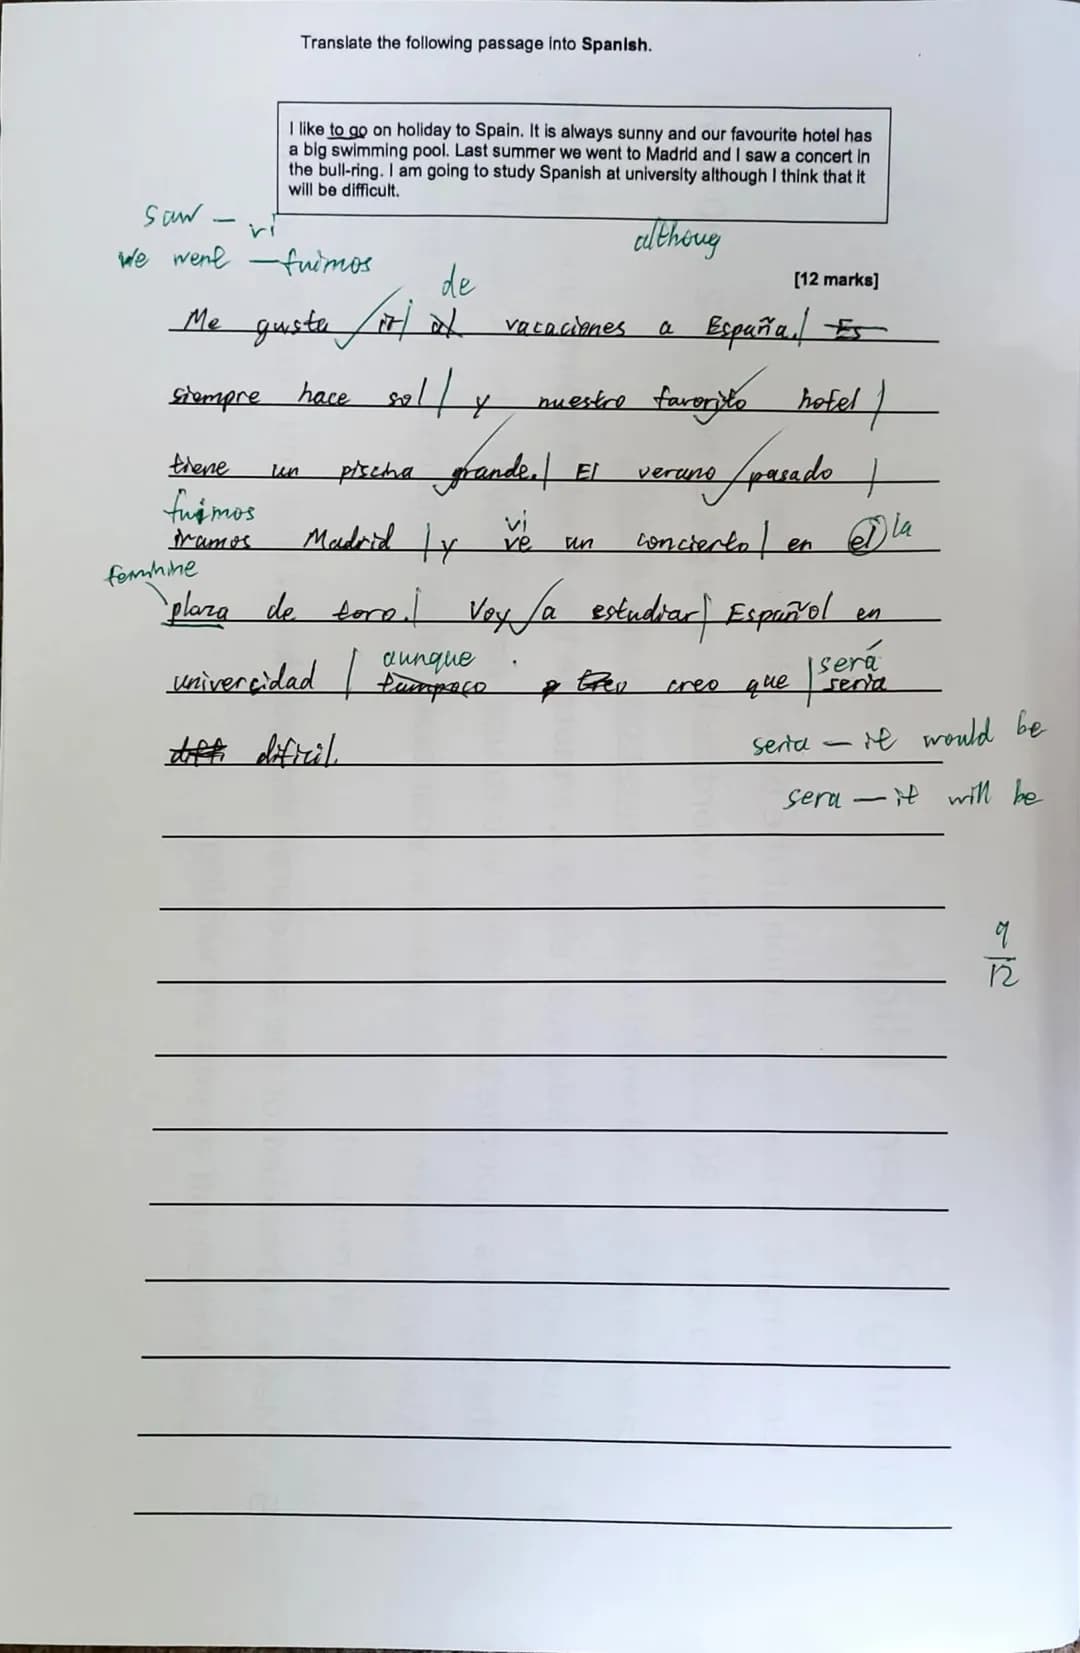 Translate the following passage into Spanish.
I like to go on holiday to Spain. It is always sunny and our favourite hotel has
a big swimming pool. Last summer we went to Madrid and I saw a concert in
the bull-ring. I am going to study Spanish at university although I think that it
will be difficult.
saw - vi
althoug
we went - fuimos
[12 marks]
de
Me gusta ir al vacaciones a España. Es
siempre hace sol y nuestro favorito hotel
tiene un piscina grande. El verano pasado
fuimos vi
iramos Madrid y ve un concierto en el la
feminine
plaza de toro. Voy a estudiar Español en
aunque será
univercidad tampoco creo que seria
dificil.
seria - it would be
sera - it will be
9
12